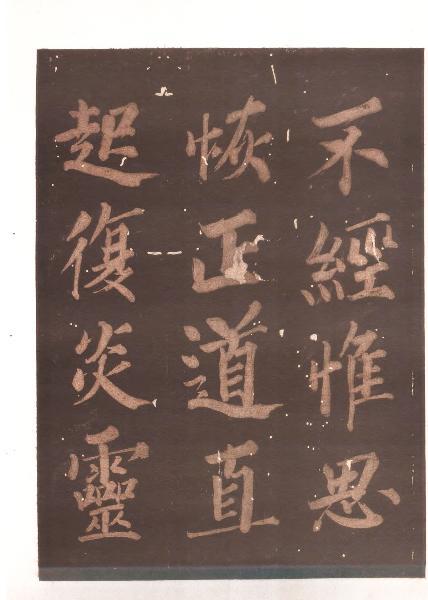 不經惟思
恢正道直
起復炎靈